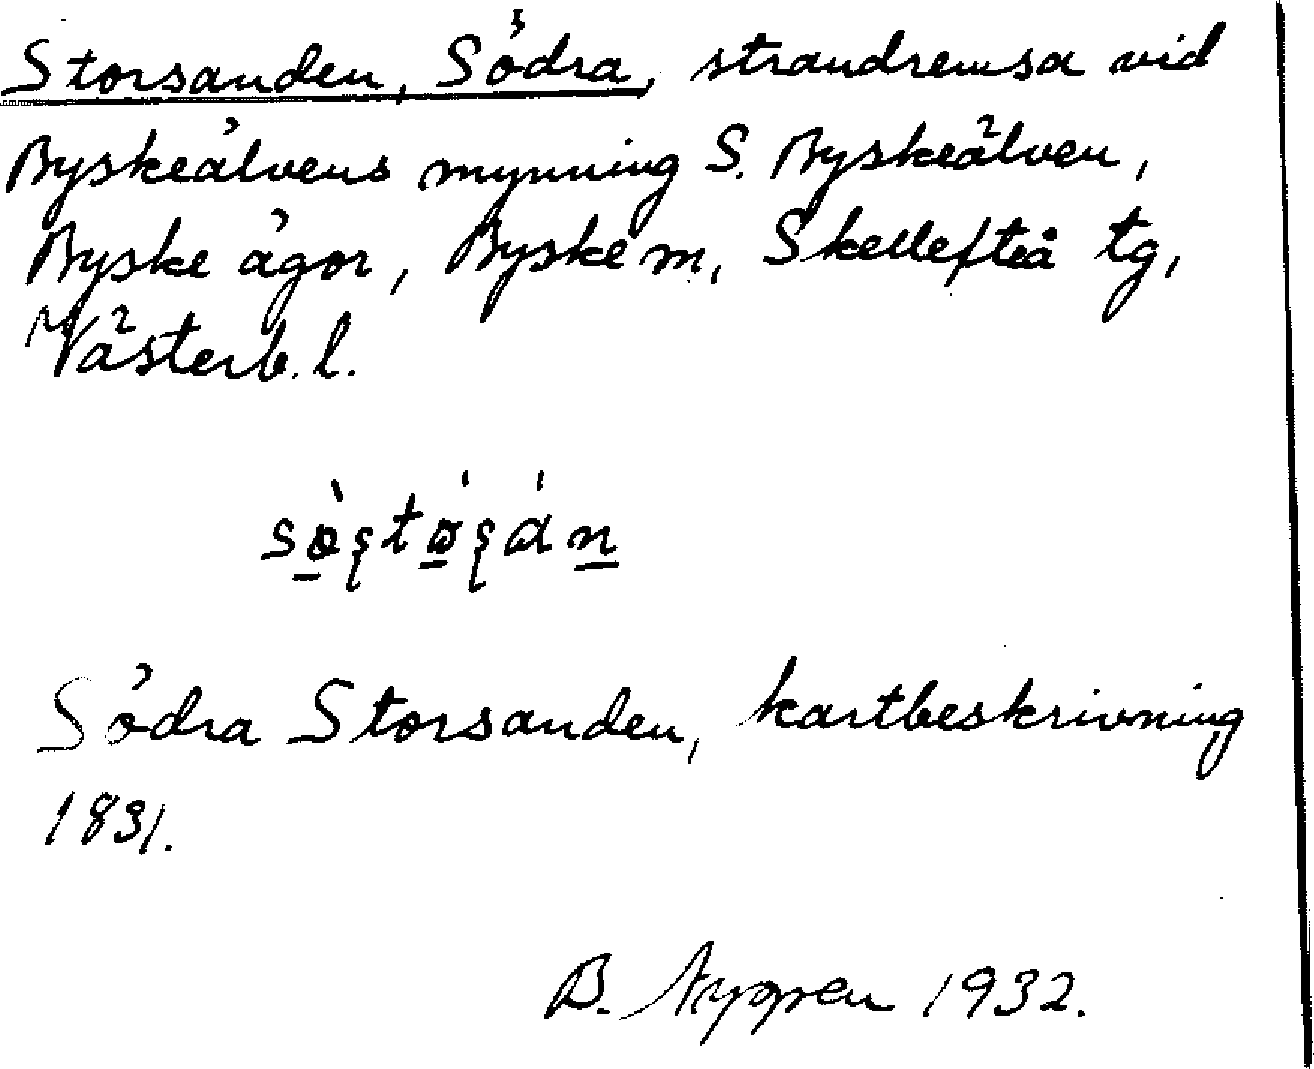 Storsanden, Södra, strandremsa vid
Byskeälvens mynning S. Byskeälven,
Byske ägor, Byske m, Skellefteå tg,
Västerb. l.
Södra Storsanden, kartbeskrivning
1831.
B. Nygren 1932.